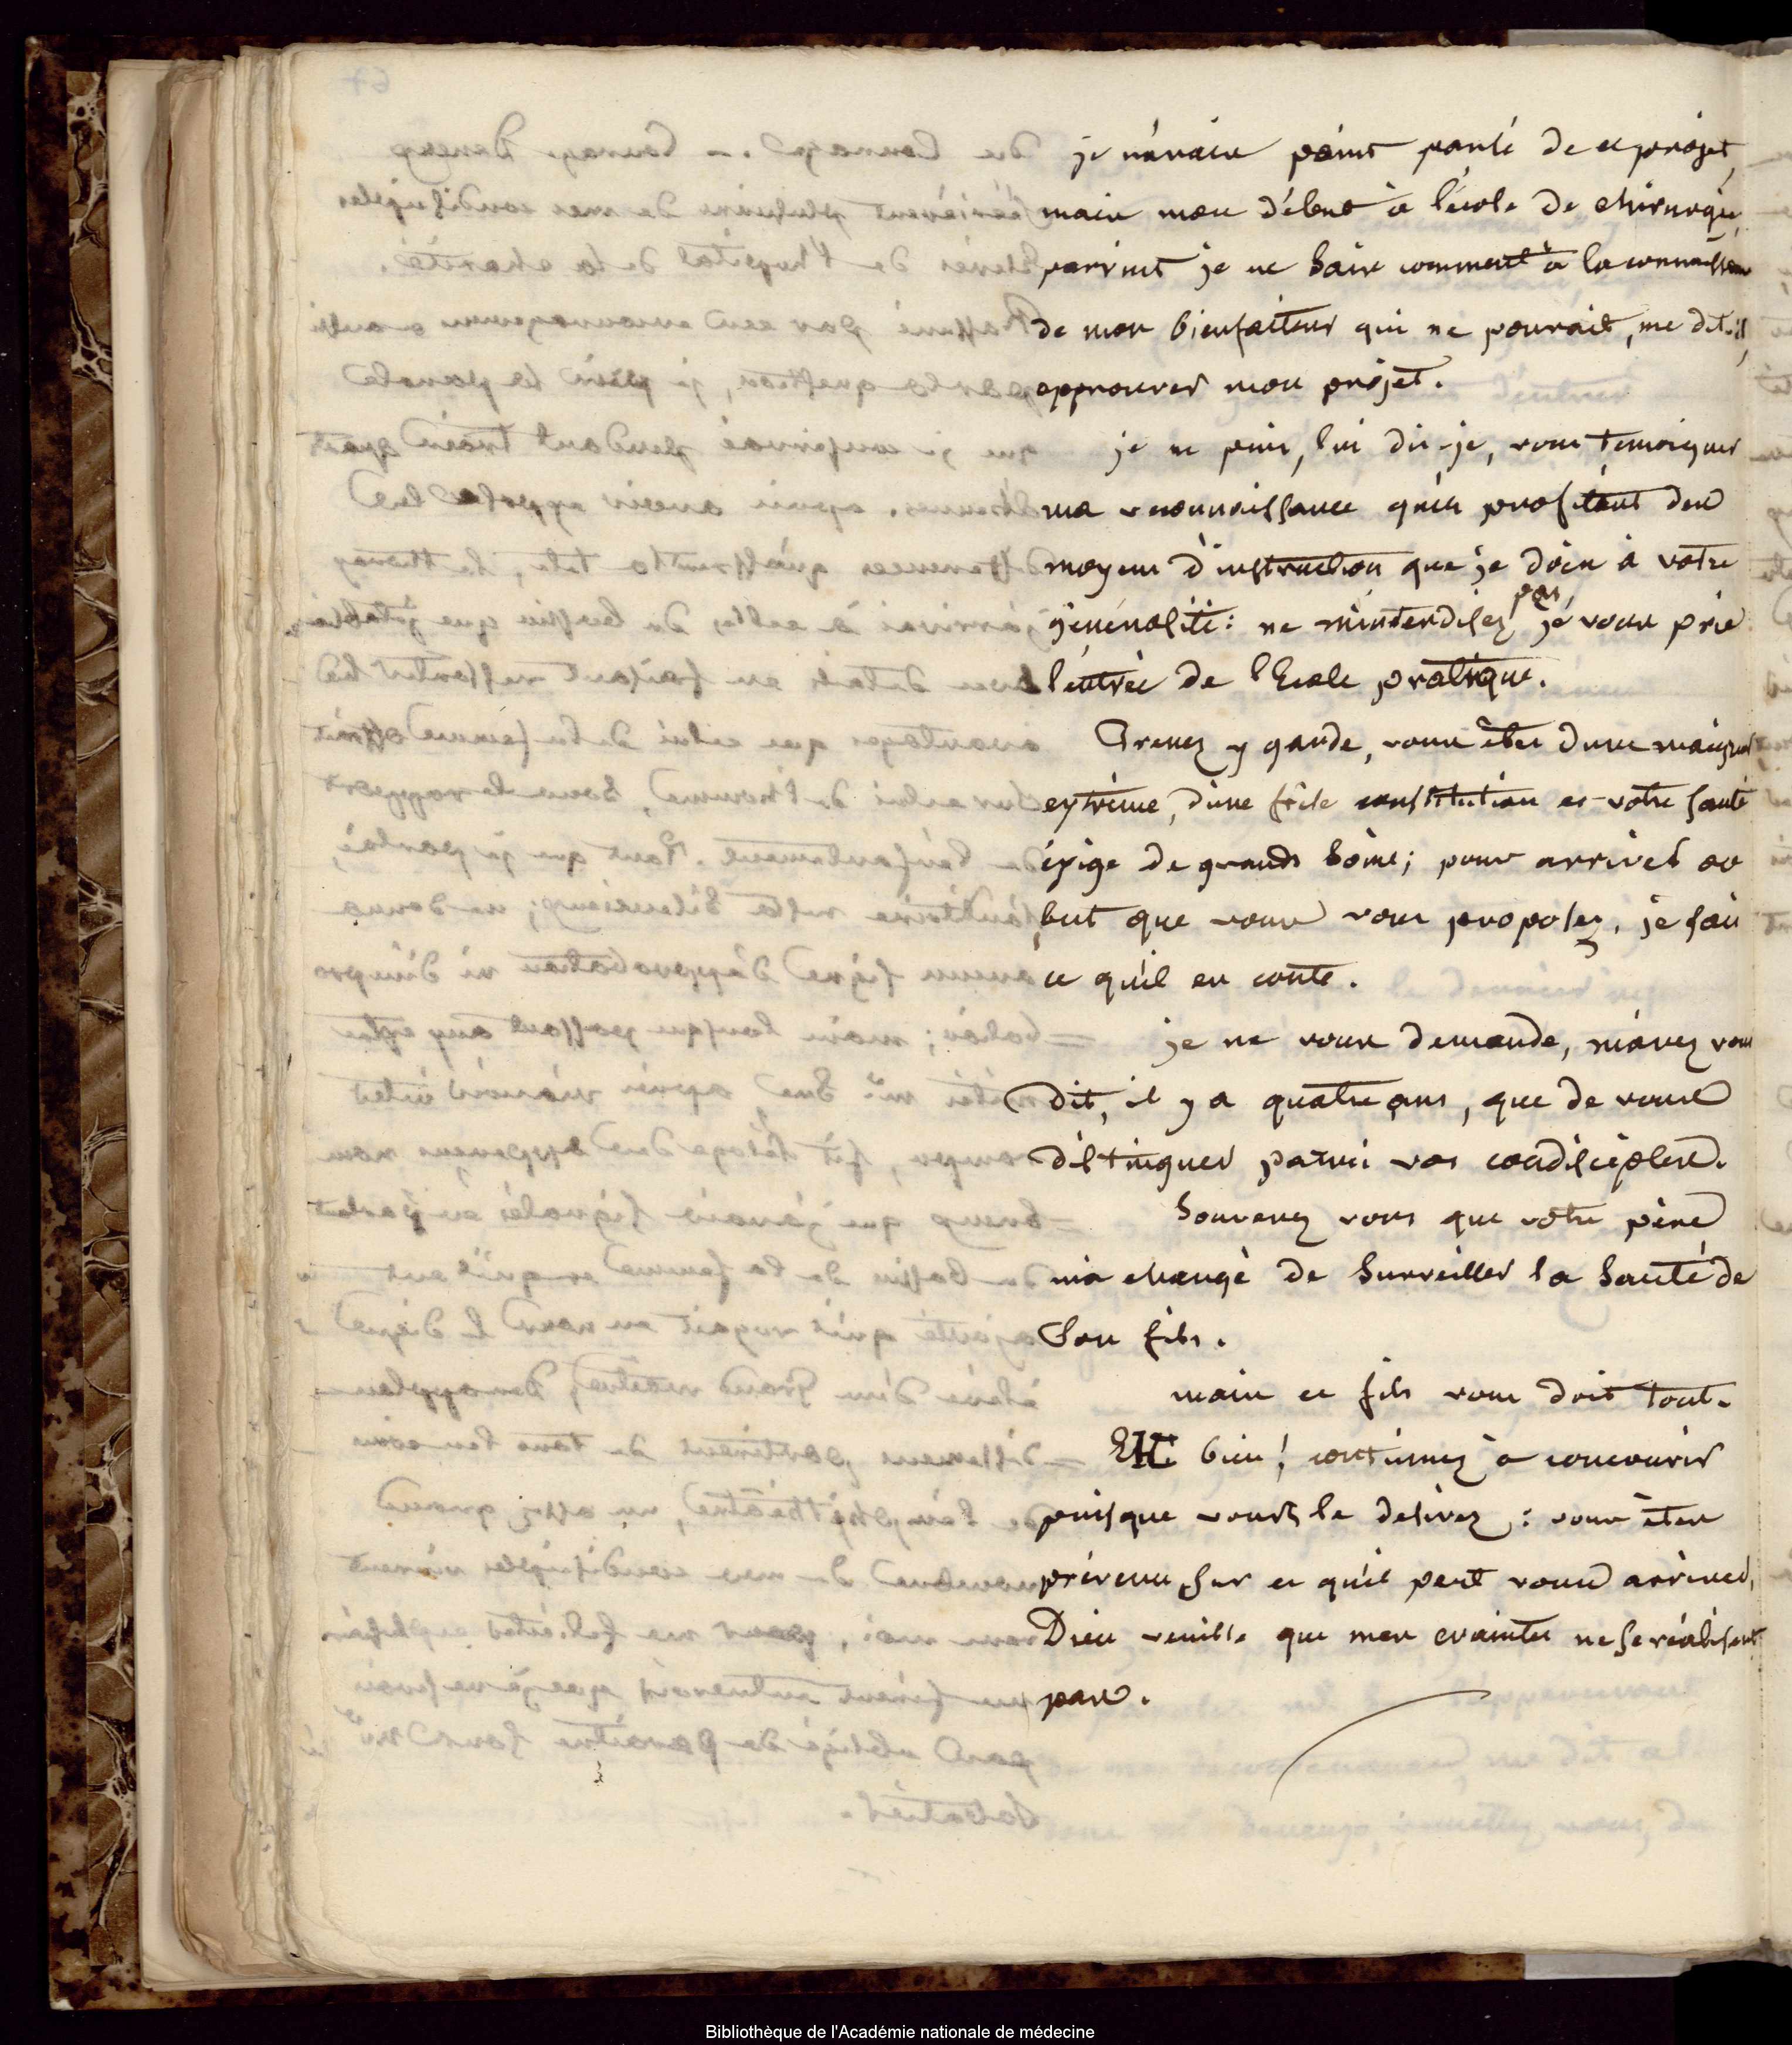 je n'avais point parlé de ce projet,
mais mon début à l'école de chirurgie,
parvint je ne sais comment à la connaissance
de mon bienfaiteur qui ne pouvait, me dit-il,
approuver mon projet.
je ne puis, lui dis-je, vous temoigner
ma reconnaissance qu'en profitant des
moyens d'instruction que je dois à votre
génénosité: ne m'interdisez pas, je vous prie
l'entrée de l'Ecole pratique.
Prenez y garde, vous êtes d'une maigreur
extrême, d'une frêle constitution et votre santé
éxige de grands soins; pour arriver au
but que vous vous proposez, je sais
ce qu'il en coute.
je ne vous demande, m'avez vous
dit, il y a quatre ans, que de vous
distinguer parmi vos condisciples.
Souvenez vous que votre père
m'a chargé de surveiller la santé de
son fils.
mais ce fils vous doit tout.
Eh bien! continuez à concourir
puisque vous le desirez: vous êtes
prévenu sur ce qu'il peut vous arriver,
Dieu veuille que mes craintes ne se réalisent
pas.
Bibliothèque de l'Académie nationale de médecine